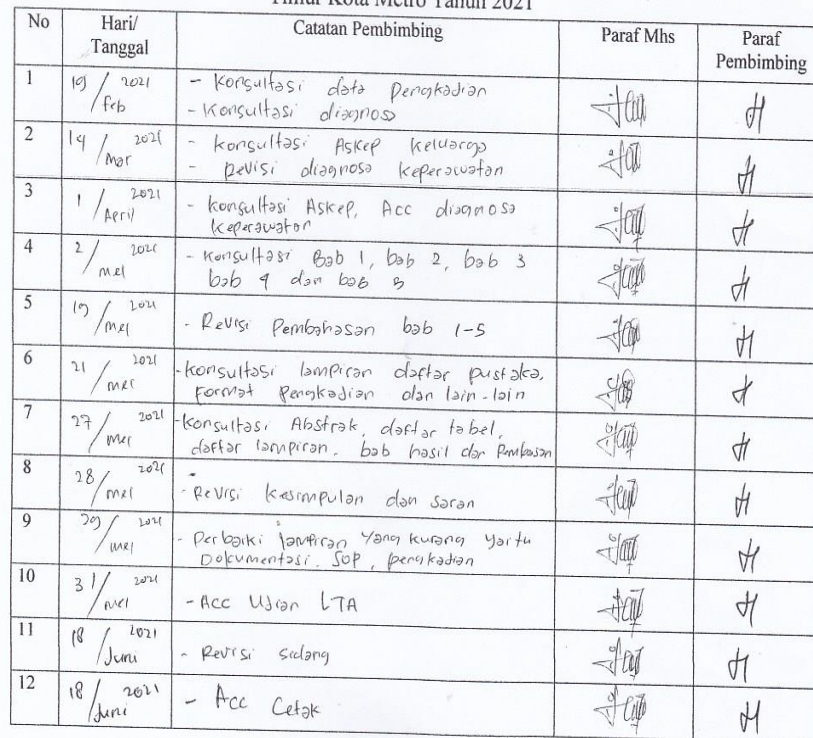 Timur Kota Metro Tahun 2021
No Hari/ Tanggal Catatan Pembimbing Paraf Mhs Paraf Pembimbing
1 19/feb 2021 - Konsultasi data Pengkajian
- Konsultasi diagnosa
2 14/Mar 2021 - Konsultasi Askep keluarga
- Revisi diagnosa keperawatan
3 1/April 2021 - konsultasi Askep, Acc diagnosa
keperawatan
4 2/mei 2021 - Konsultasi Bab 1, bab 2, bab 3
bab 4 dan bab 5
5 19/mei 2021 - Revisi Pembahasan bab 1-5
6 21/mei 2021 - konsultasi lampiran daftar pustaka,
Format Pengkajian dan lain-lain
7 27/mei 2021 - Konsultasi Abstrak, daftar tabel,
daftar lampiran. bab hasil dan Pembasan
8 28/mei 2021 - Revisi kesimpulan dan saran
9 29/mei 2021 - Perbaiki lampiran yang kurang yaitu
Dokumentasi. SOP, pengkajian
10 31/mei 2021 - Acc Ujian LTA
11 18/Juni 2021 - Revisi sidang
12 18/Juni 2021 - Acc Cetak